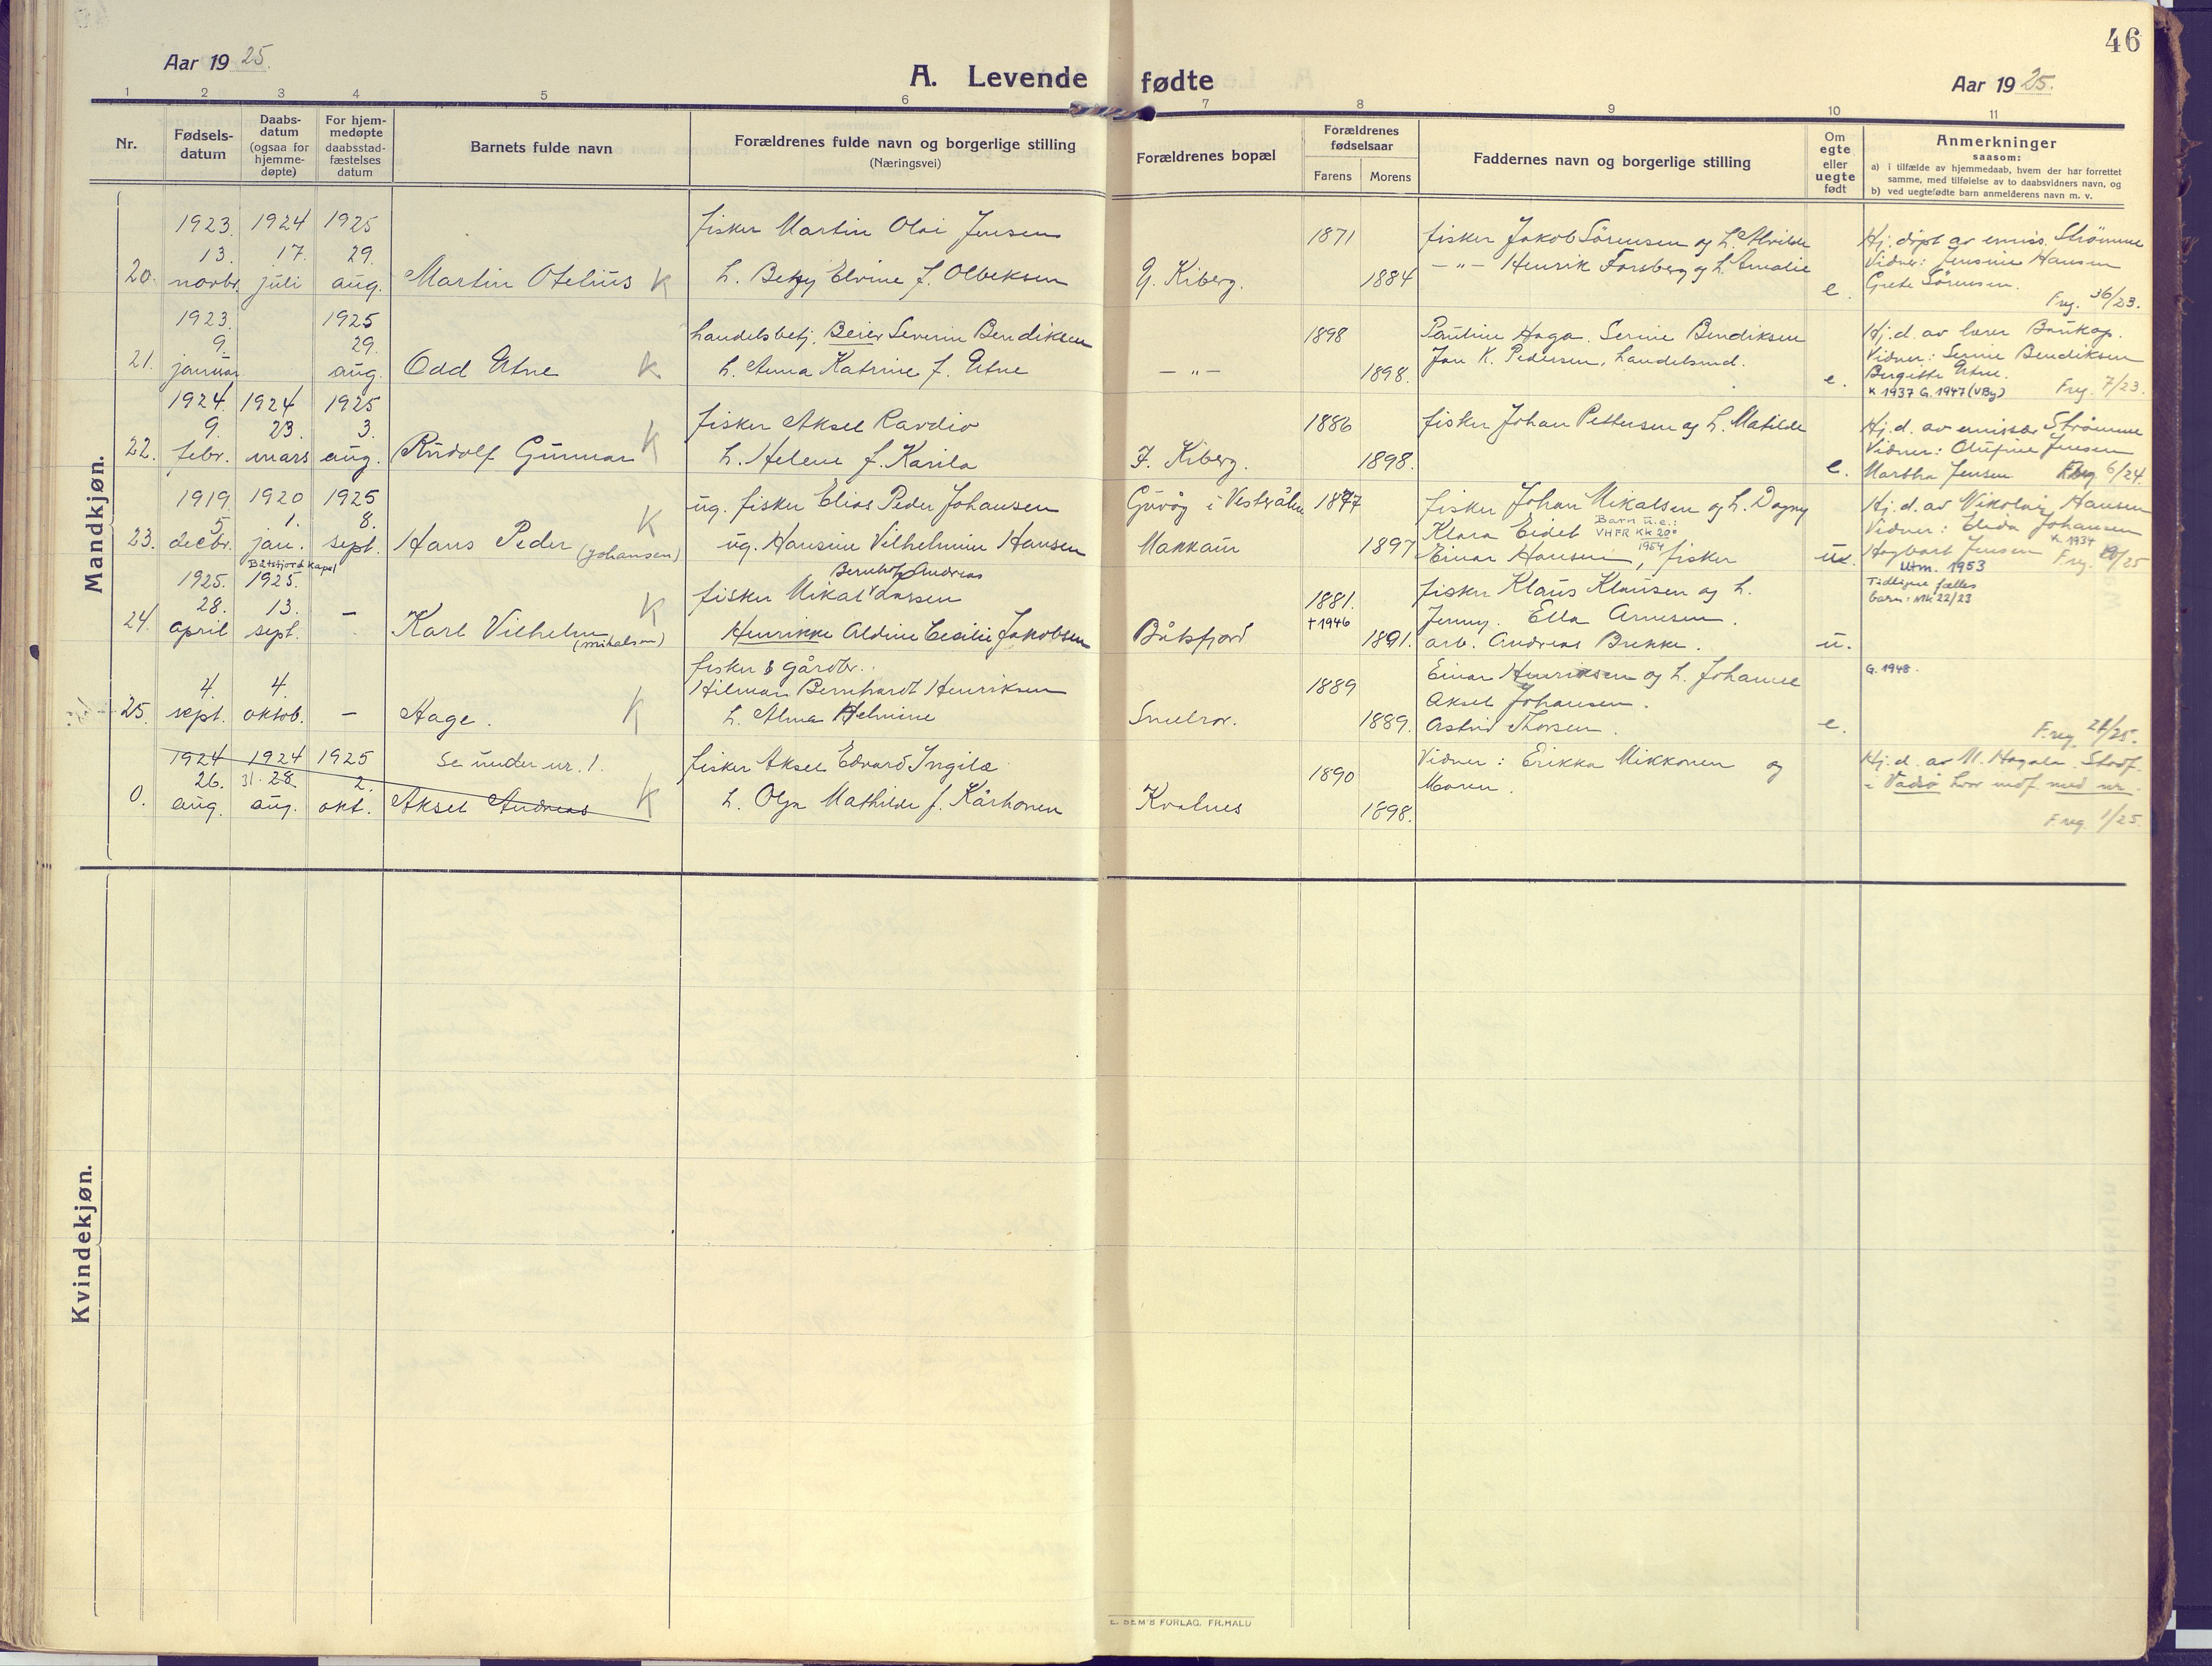 46
Aar 1925.
A. Levende fødte
Aar 1925.
1 2 3 4 5 6 7 8 9 10 11
Nr.
Fødsels-
datum
Daabs-
datum
(ogsaa for
hjemme-
døpte)
For hjem-
medøpte
daabsstad-
fæstelses
datum
Barnets fulde navn
Forældrenes fulde navn og borgerlige stilling
(Næringsvei)
Forældrenes bopæl
Forældrenes
fødselsaar
Farens Morens
Faddernes navn og borgerlige stilling
Om
egte
eller
uegte
født
Anmerkninger
saasom:
a) i tilfælde av hjemmedaab, hvem der har forrettet
samme, med tilføielse av to daabsvidners navn, og
b) ved uegtefødte barn anmelderens navn m. v.
Mandkjøn.
20.
1923.
13.
novbr.
1924
17.
juli
1925
29.
aug.
Martin Otelius K
fisker Martin Olai Jensen
h. Betzy Elvine f. Olbeksen
Y. Kiberg.
1871
1884
fisker Jakob Sörensen og h. Alvilde
— " — Henrik Forsberg og h. Amalie
e.
Hj. döpt av emiss. Strömme
Vidner: Jensine Hansen
Grete Sörensen.
Freg. 36/23.
21.
1923.
9.
januar
1925
29.
aug.
Odd Utne K
handelsbetj. Beier Severin Bendiksen
h. Anna Katrine f. Utne
— " —
1898
1898.
Pauline Haga. Serine Bendiksen
Jan K. Pedersen, handelsmd.
e.
Hj. d. av lærer
Vidner: Serine Bendiksen
Bergitte Utne.
K 1937 G. 1947 (VBy) Freg. 7/23.
22.
1924.
9.
febr.
1924
23.
mars
1925
3.
aug.
Rudolf Gunnar K
fisker Aksel Ravdio
h. Helene f. Karila
I. Kiberg.
1886
1898.
fisker Johan Pettersen og h. Matilde
e.
Hj. d. av emissær Strömme
Vidner: Olufine Jensen
Martha Jensen Freg. 6/24.
23.
1919.
5
decbr.
1920
1.
jan.
1925
8.
sept.
Hans Peder (Johansen) K
ug. fisker Elias Peder Johansen
ug. Hansine Vilhelmine Hansen
Guvåg i Vesterålen
Makkaur
1877
1897
fisker Johan Mikalsen og h. Dagny
Klara Eidet
Barn u.e.:
VHFR Kk 20°
1954
Einar Hansen, fisker
ue.
Hj. d. av Nikolai Hansen
Vidner: Elida Johansen
K. 1934
Hagbart Jensen Freg. /25
Utm. 1953
24.
1925.
28.
april
Båtsfjord Kapel
1925.
13.
sept.
—
Karl Vilhelm (Mikalsen) K
Bernhof Andreas
fisker Mikal Larssen
Henrikke Aldine Cecilie Jakobsen
Båtsfjord
1881.
† 1946
1891.
fisker Klaus Klausen og h.
Jenny. Ella Arnesen.
arb. Andreas Brekke.
u.
Tidligere fælles
barn: Mk 22/23
25.
4.
sept.
4.
oktob.
—
Aage. K
fisker & gårdbr.
Hilmar Bernhardt Henriksen
h. Alma Helmine
Smelror.
1889
1889.
Einar Henriksen og h. Johanne
Aksel Johansen.
Astrid Thorsen.
e.
G. 1948.
Freg. 21/25.
0.
1924
26.
aug.
1924
31. 28
aug.
1925
2.
okt.
Se under nr. 1.
Aksel Andreas K
fisker Aksel Edvard Ingila
h. Olga Mathilde f. Kårhonen
Kvalnes
1890
1898.
Vidner: Erikka Mikkonen og
Moren.
Hj. d. av M. Hagala. Stadf.
i Vadsø hvor indf. med nr.
Freg. 1/25.
Kvindekjøn.
E. SEM'S FORLAG, FR.HALD